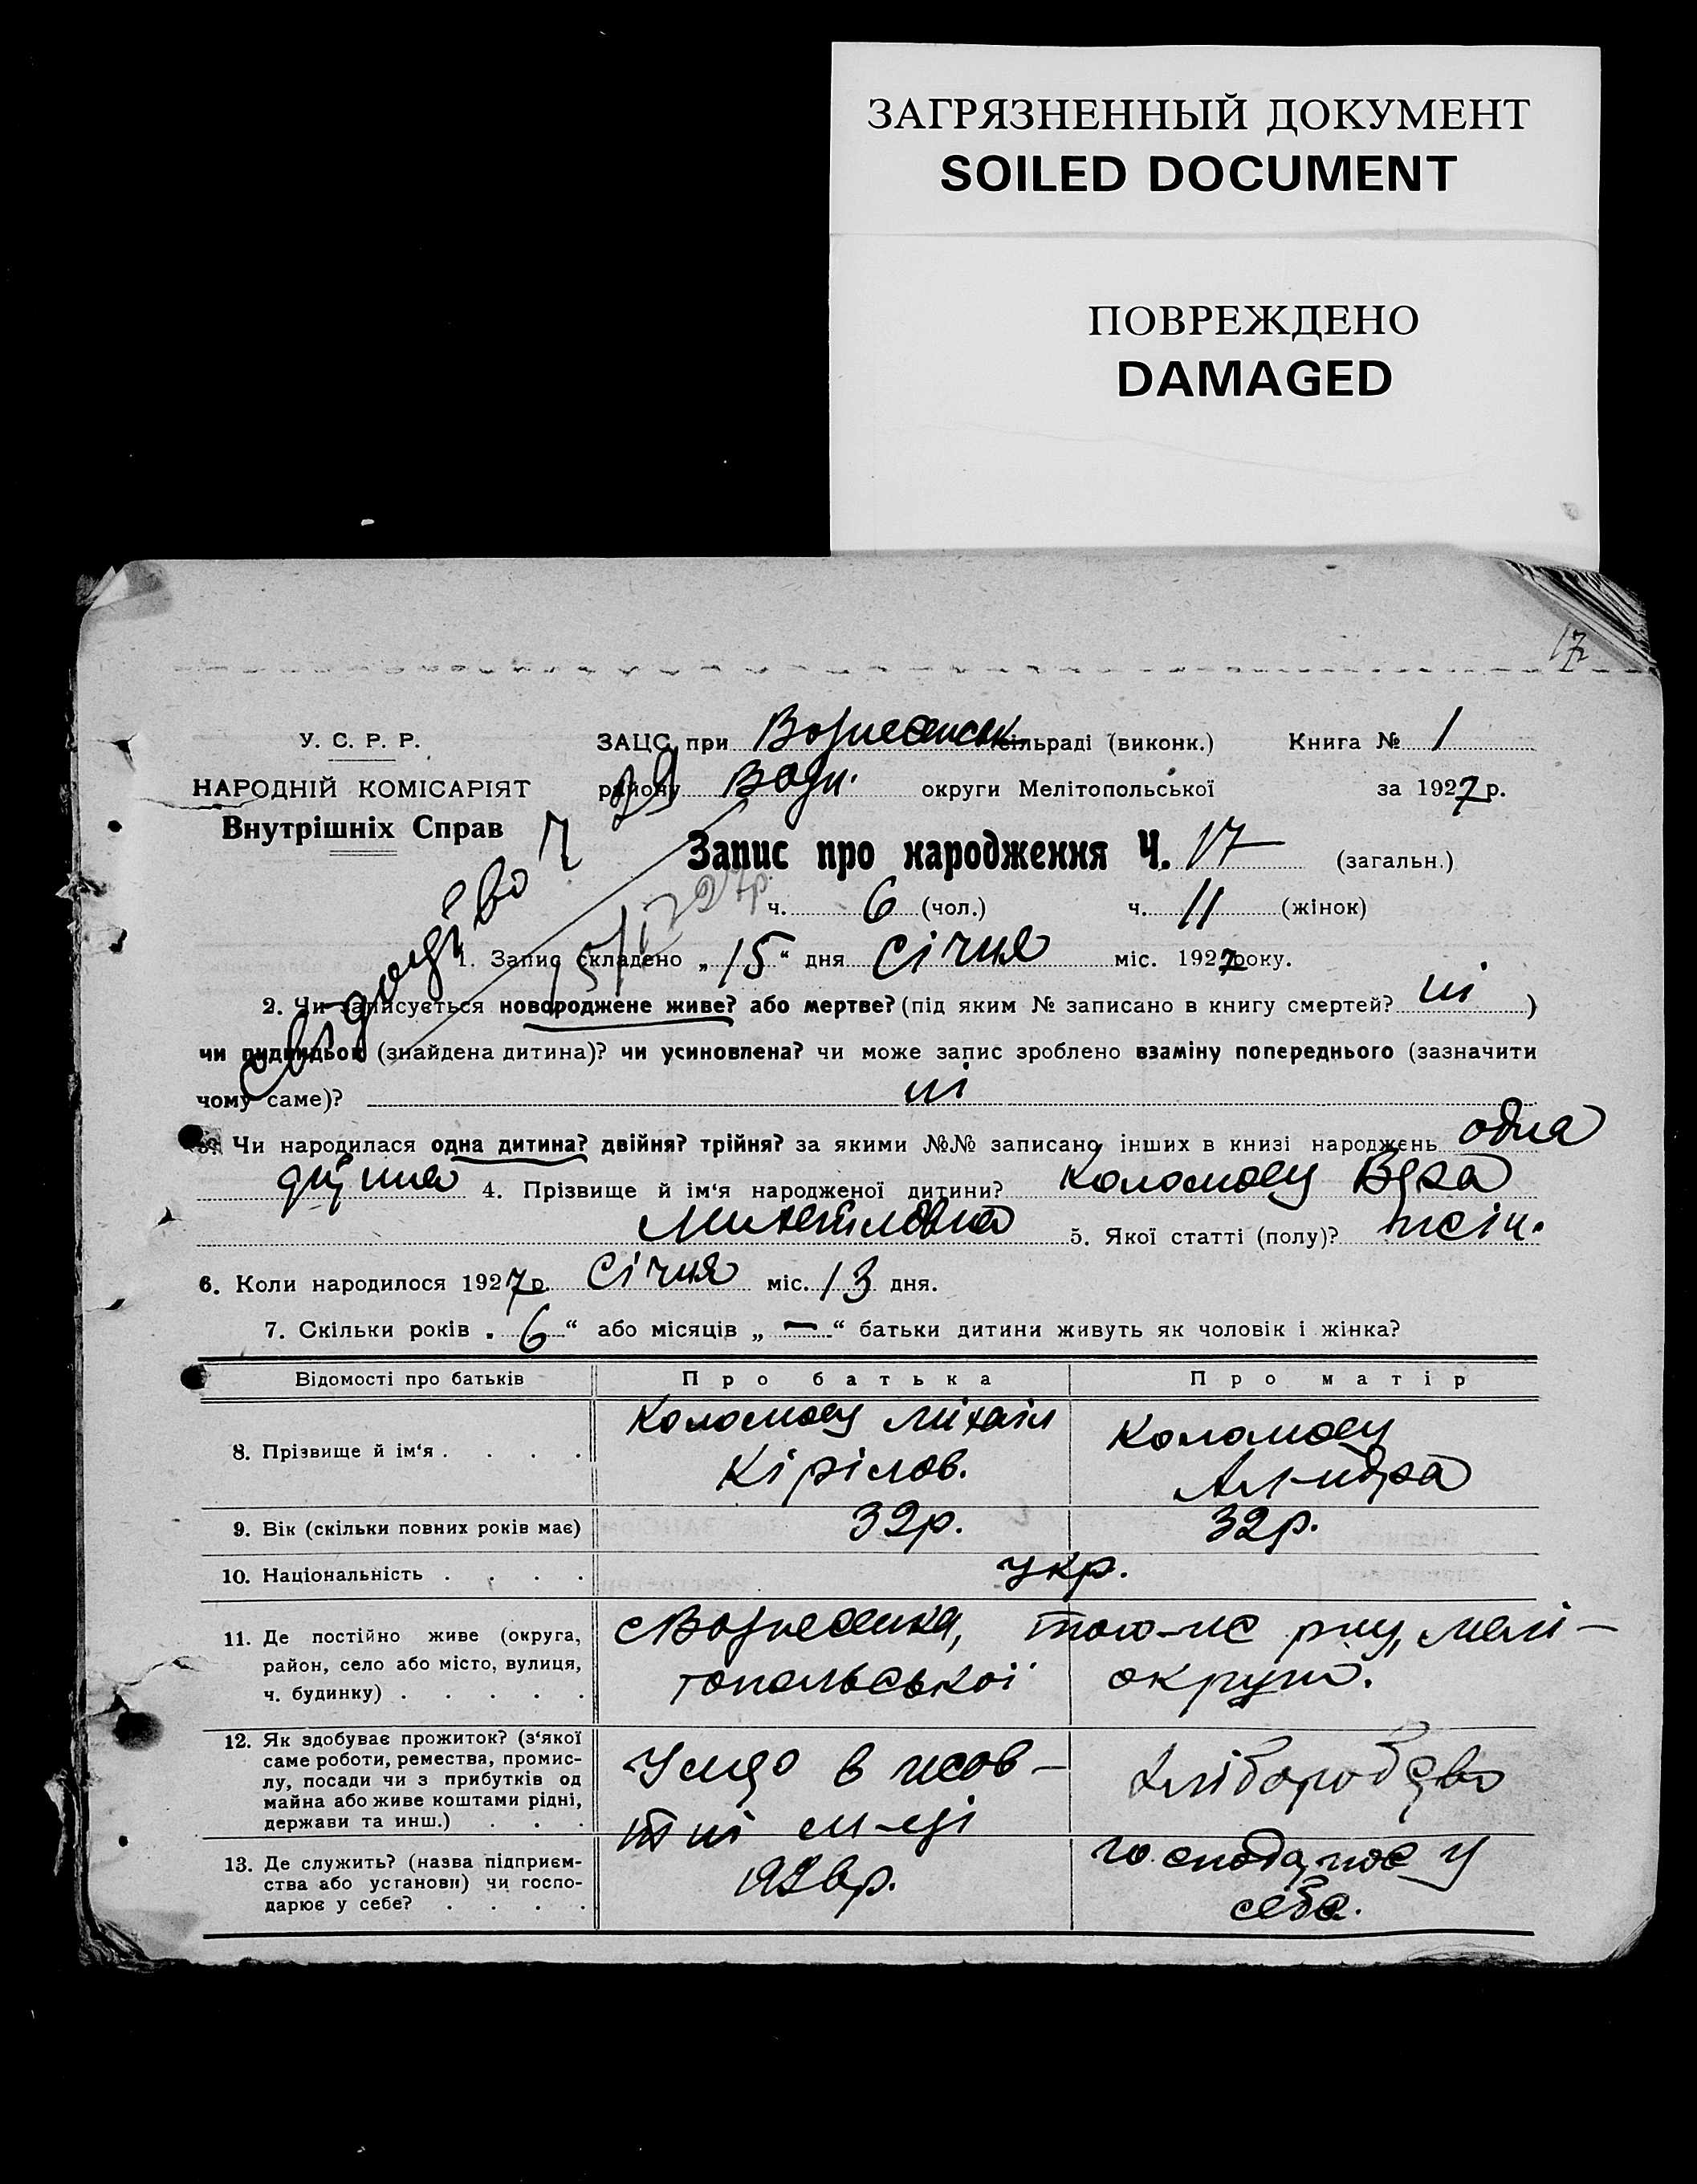 ЗАГРЯЗНЕННЫЙ ДОКУМЕНТ
SOILED DOCUMENT
ПОВРЕЖДЕНО
DAMAGED
17
У. С. Р. Р.
ЗАЦС при Вознесенськ сільраді (виконк.) Книга № 1
НАРОДНІЙ КОМІСАРІЯТ
району округи Мелітопольської за 1927 р.
Внутрішніх Справ
Запис про народження Ч. 17 (загальн.)
ч. 6 (чол.) ч. 11 (жінок)
1. Запис складено „ 15 “ дня Січня міс. 1927 року.
2. Чи записується новороджене живе? або мертве? (під яким № записано в книгу смертей? ні )
чи (знайдена дитина)? чи усиновлена? чи може запис зроблено взаміну попереднього (зазначити
чому саме)? ні
3. Чи народилася одна дитина? двійня? трійня? за якими №№ записано інших в книзі народжень одна
дитина 4. Прізвище й ім‘я народженої дитини? Коломоец Вера
Михайловна 5. Якої статті (полу)? жін.
6. Коли народилося 1927 р. Січня міс. 13 дня.
7. Скільки років „ 6 “ або місяців „ — “ батьки дитини живуть як чоловік і жінка?
Відомості про батьків Про батька Про матір
8. Прізвище й ім‘я . . . .
Коломоец Міхаіл
Кірілов.
Коломоец
9. Вік (скільки повних років має) 32р. 32р.
10. Національність . . . . укр.
11. Де постійно живе (округа,
район, село або місто, вулиця,
ч. будинку) . . . . .
с Вознесенка, того-же р-ну, мелі-
топольської округи.
12. Як здобуває прожиток? (з‘якої
саме роботи, ремества, промис-
лу, посади чи з прибутків од
майна або живе коштами рідні,
держави та инш.) . . .
в жов-
тні
1926р.
хліборобство
13. Де служить? (назва підприєм-
ства або установи) чи госпо-
дарює у себе? . . . .
господарює у
себе.